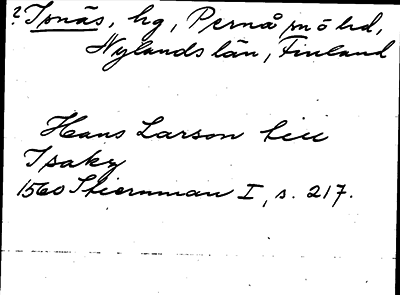 ? Isnäs, hg, Pernå sn ö hd,
Nylands län, Finland
Hans Larson till
Isaky
1560 Stiernman I, s. 217.